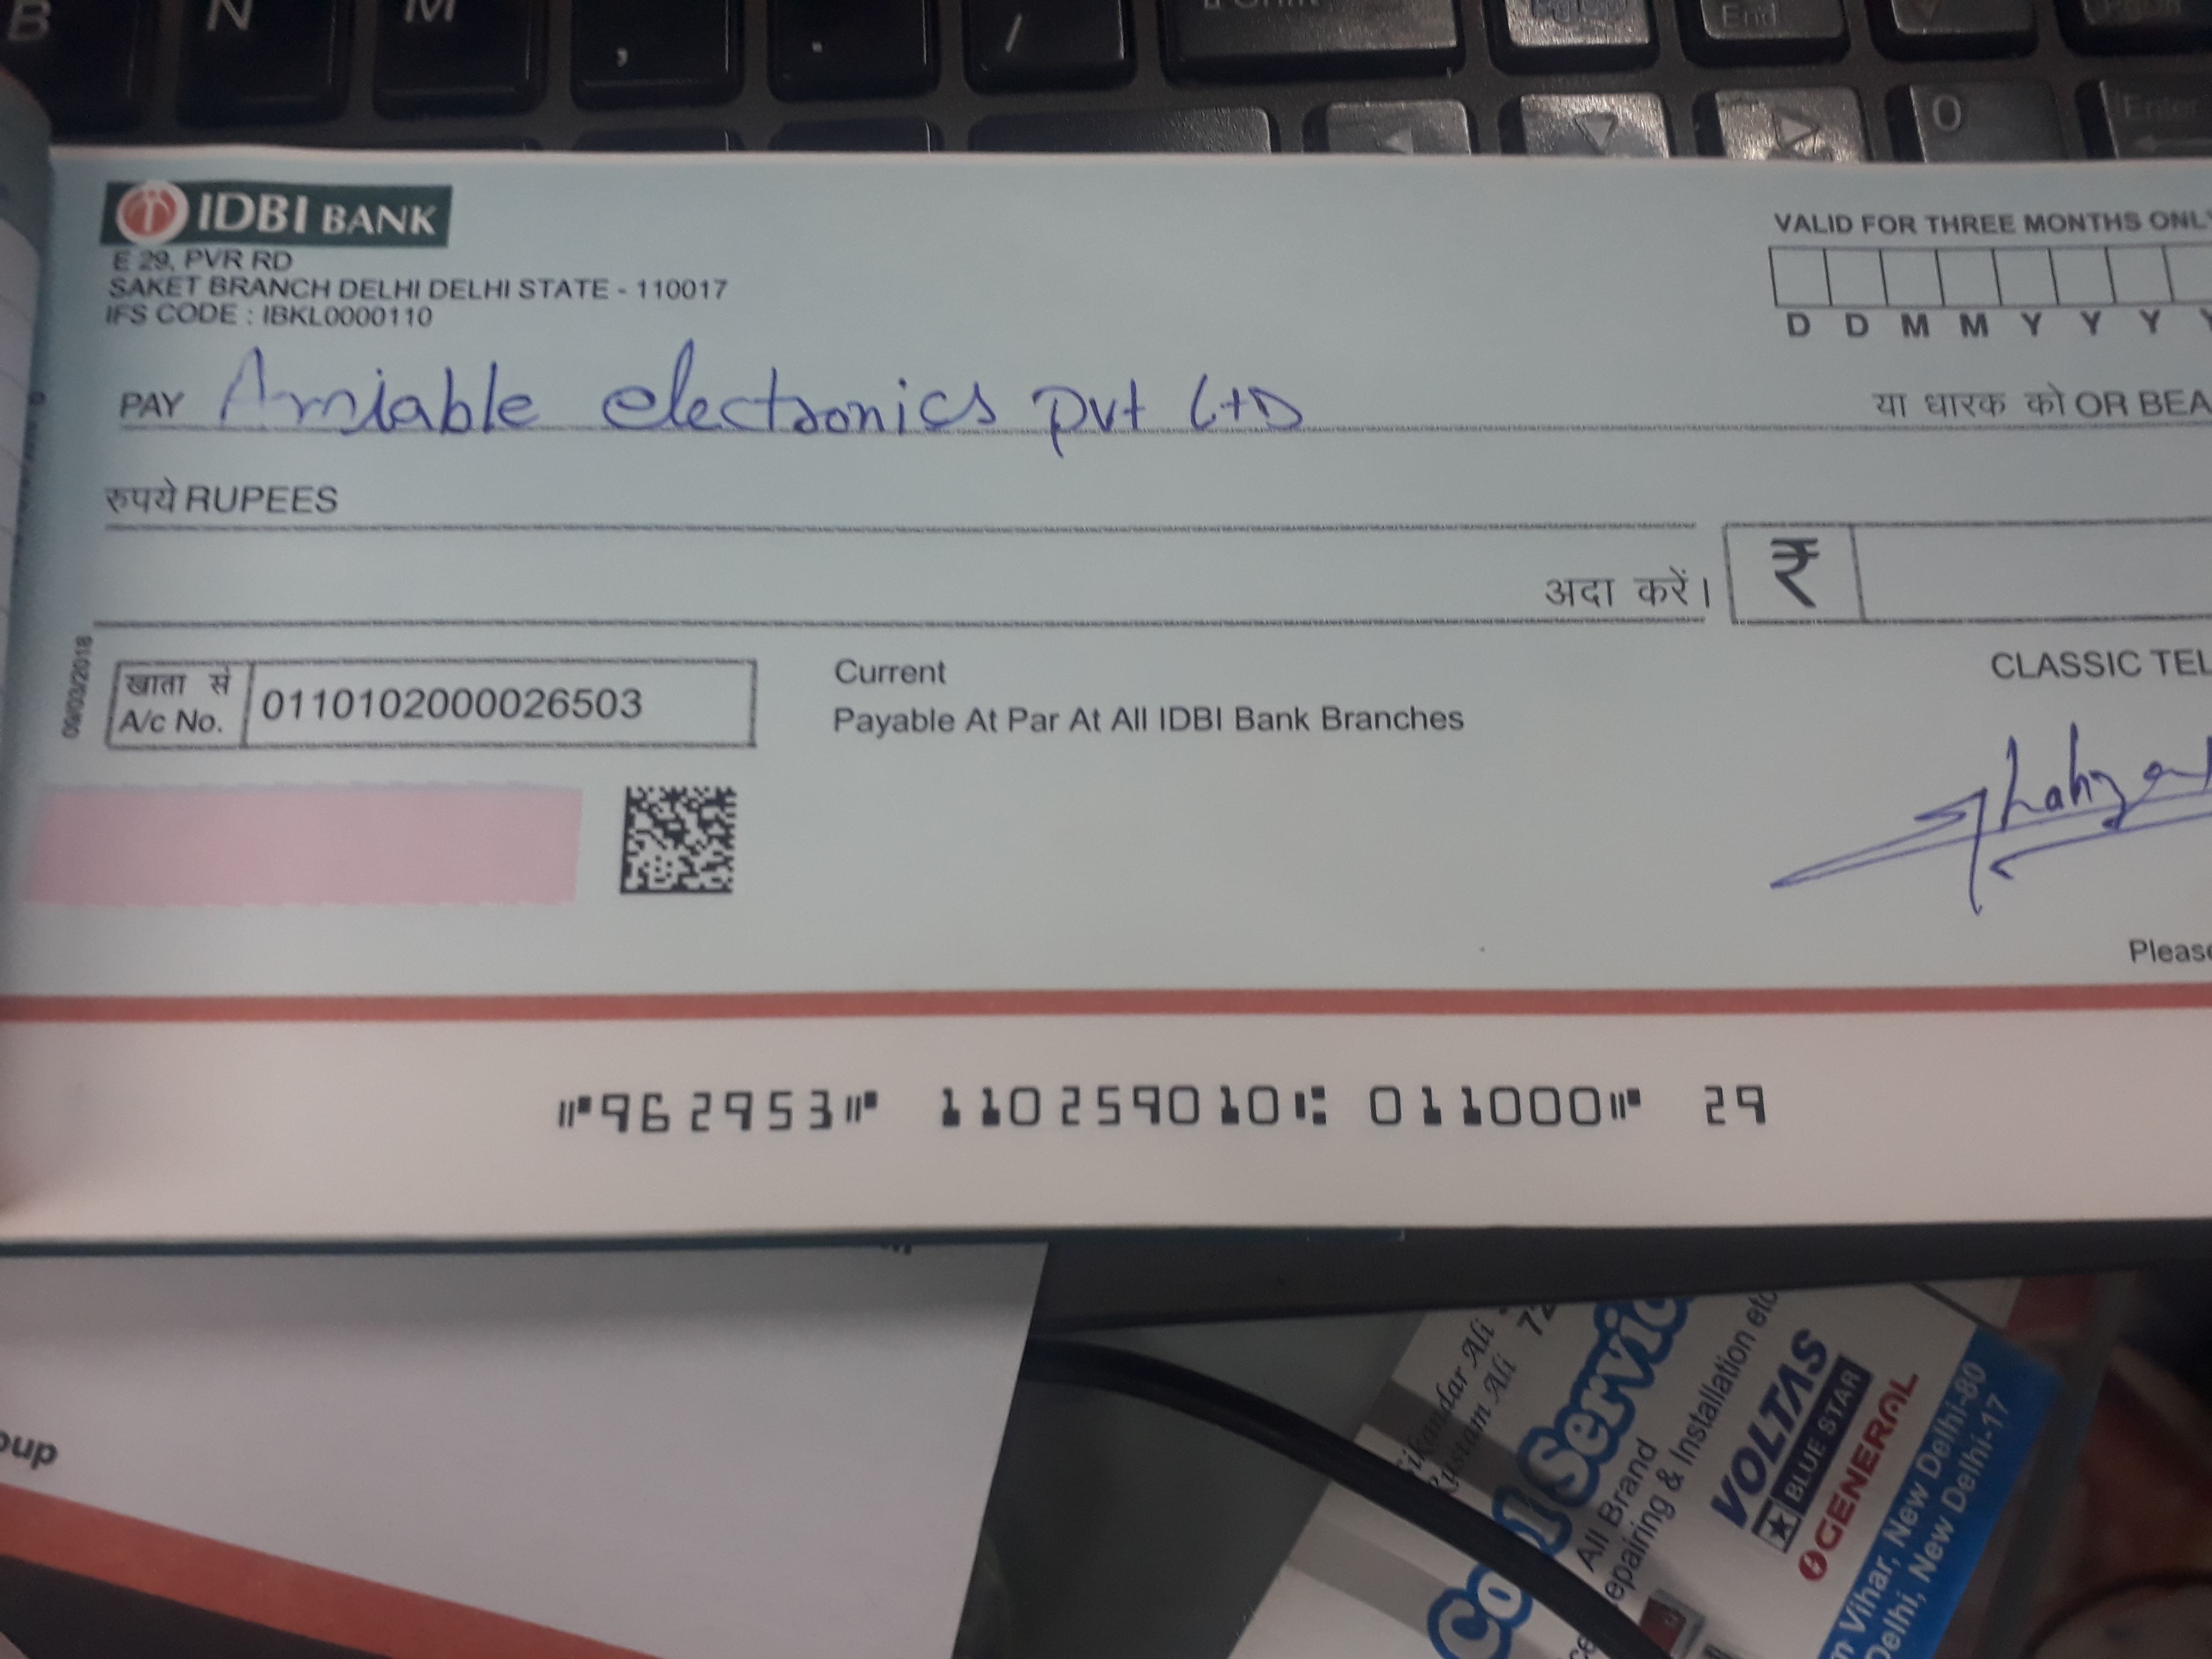 B N M , . / Shift End
0 Enter
IDBI BANK
E 29, PVR RD
SAKET BRANCH DELHI DELHI STATE - 110017
IFS CODE : IBKL0000110
VALID FOR THREE MONTHS ONLY
D D M M Y Y Y Y
PAY Amiable electronics pvt LtD
या धारक को OR BEA
रुपये RUPEES
अदा करें।
₹
09/03/2018
खाता सं
A/c No. 0110102000026503
Current
Payable At Par At All IDBI Bank Branches
CLASSIC TEL
Please
962953 110259010 011000 29
oup
Sikandar Ali
Rustam Ali 72
Cool Servic
All Brand
epairing & Installation etc
VOLTAS
BLUE STAR
GENERAL
m Vihar, New Delhi-80
Delhi, New Delhi-17